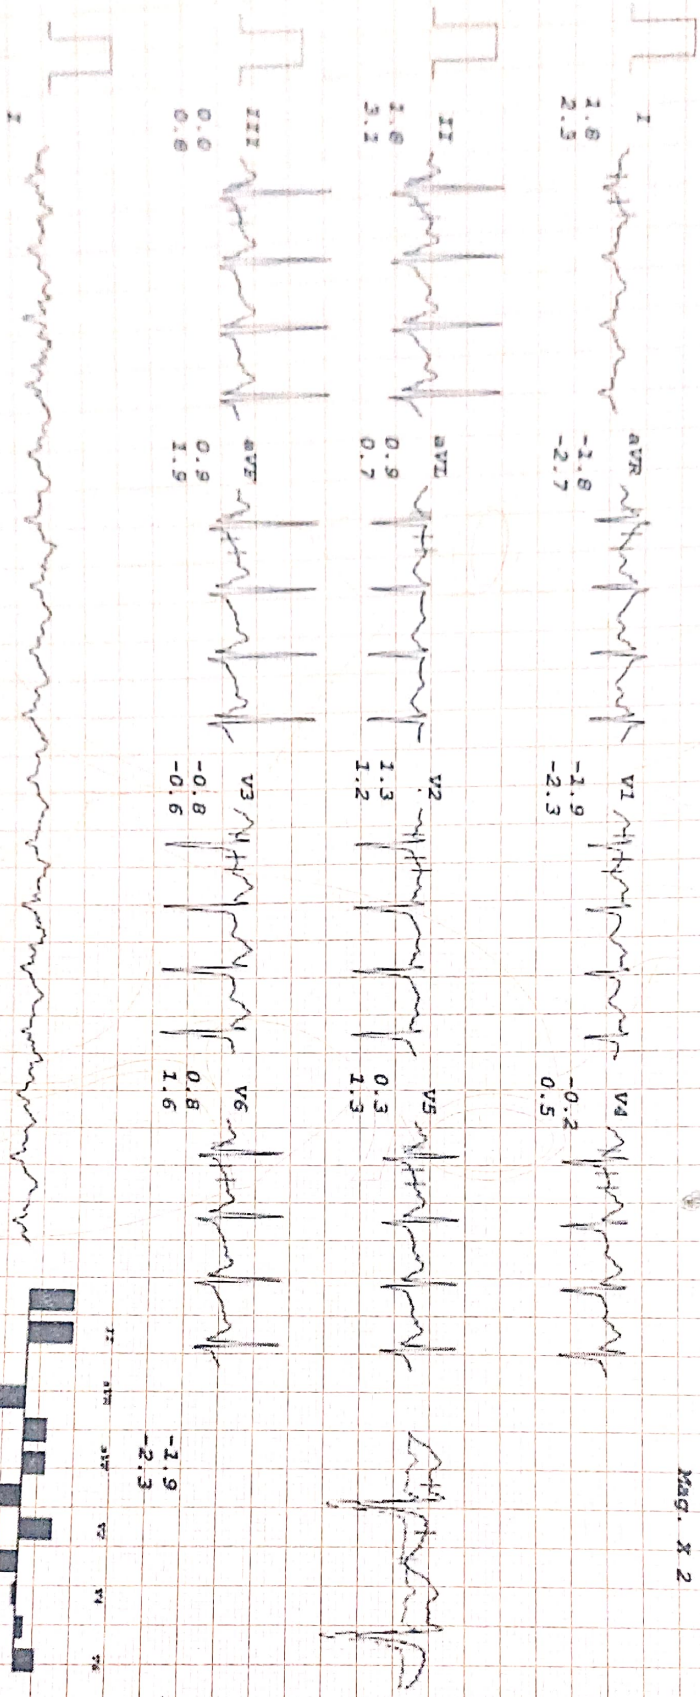 Mag. X 2
I
1.8
2.3
aVR
-1.8
-2.7
V1
-1.9
-2.3
V4
-0.2
0.5
II
1.8
3.1
aVL
0.9
0.7
V2
1.3
1.2
V5
0.3
1.3
III
0.0
0.8
aVF
0.9
1.9
V3
-0.8
-0.6
V6
0.8
1.6
-1.9
-2.3
I
II
aVR
V2
V4
V6